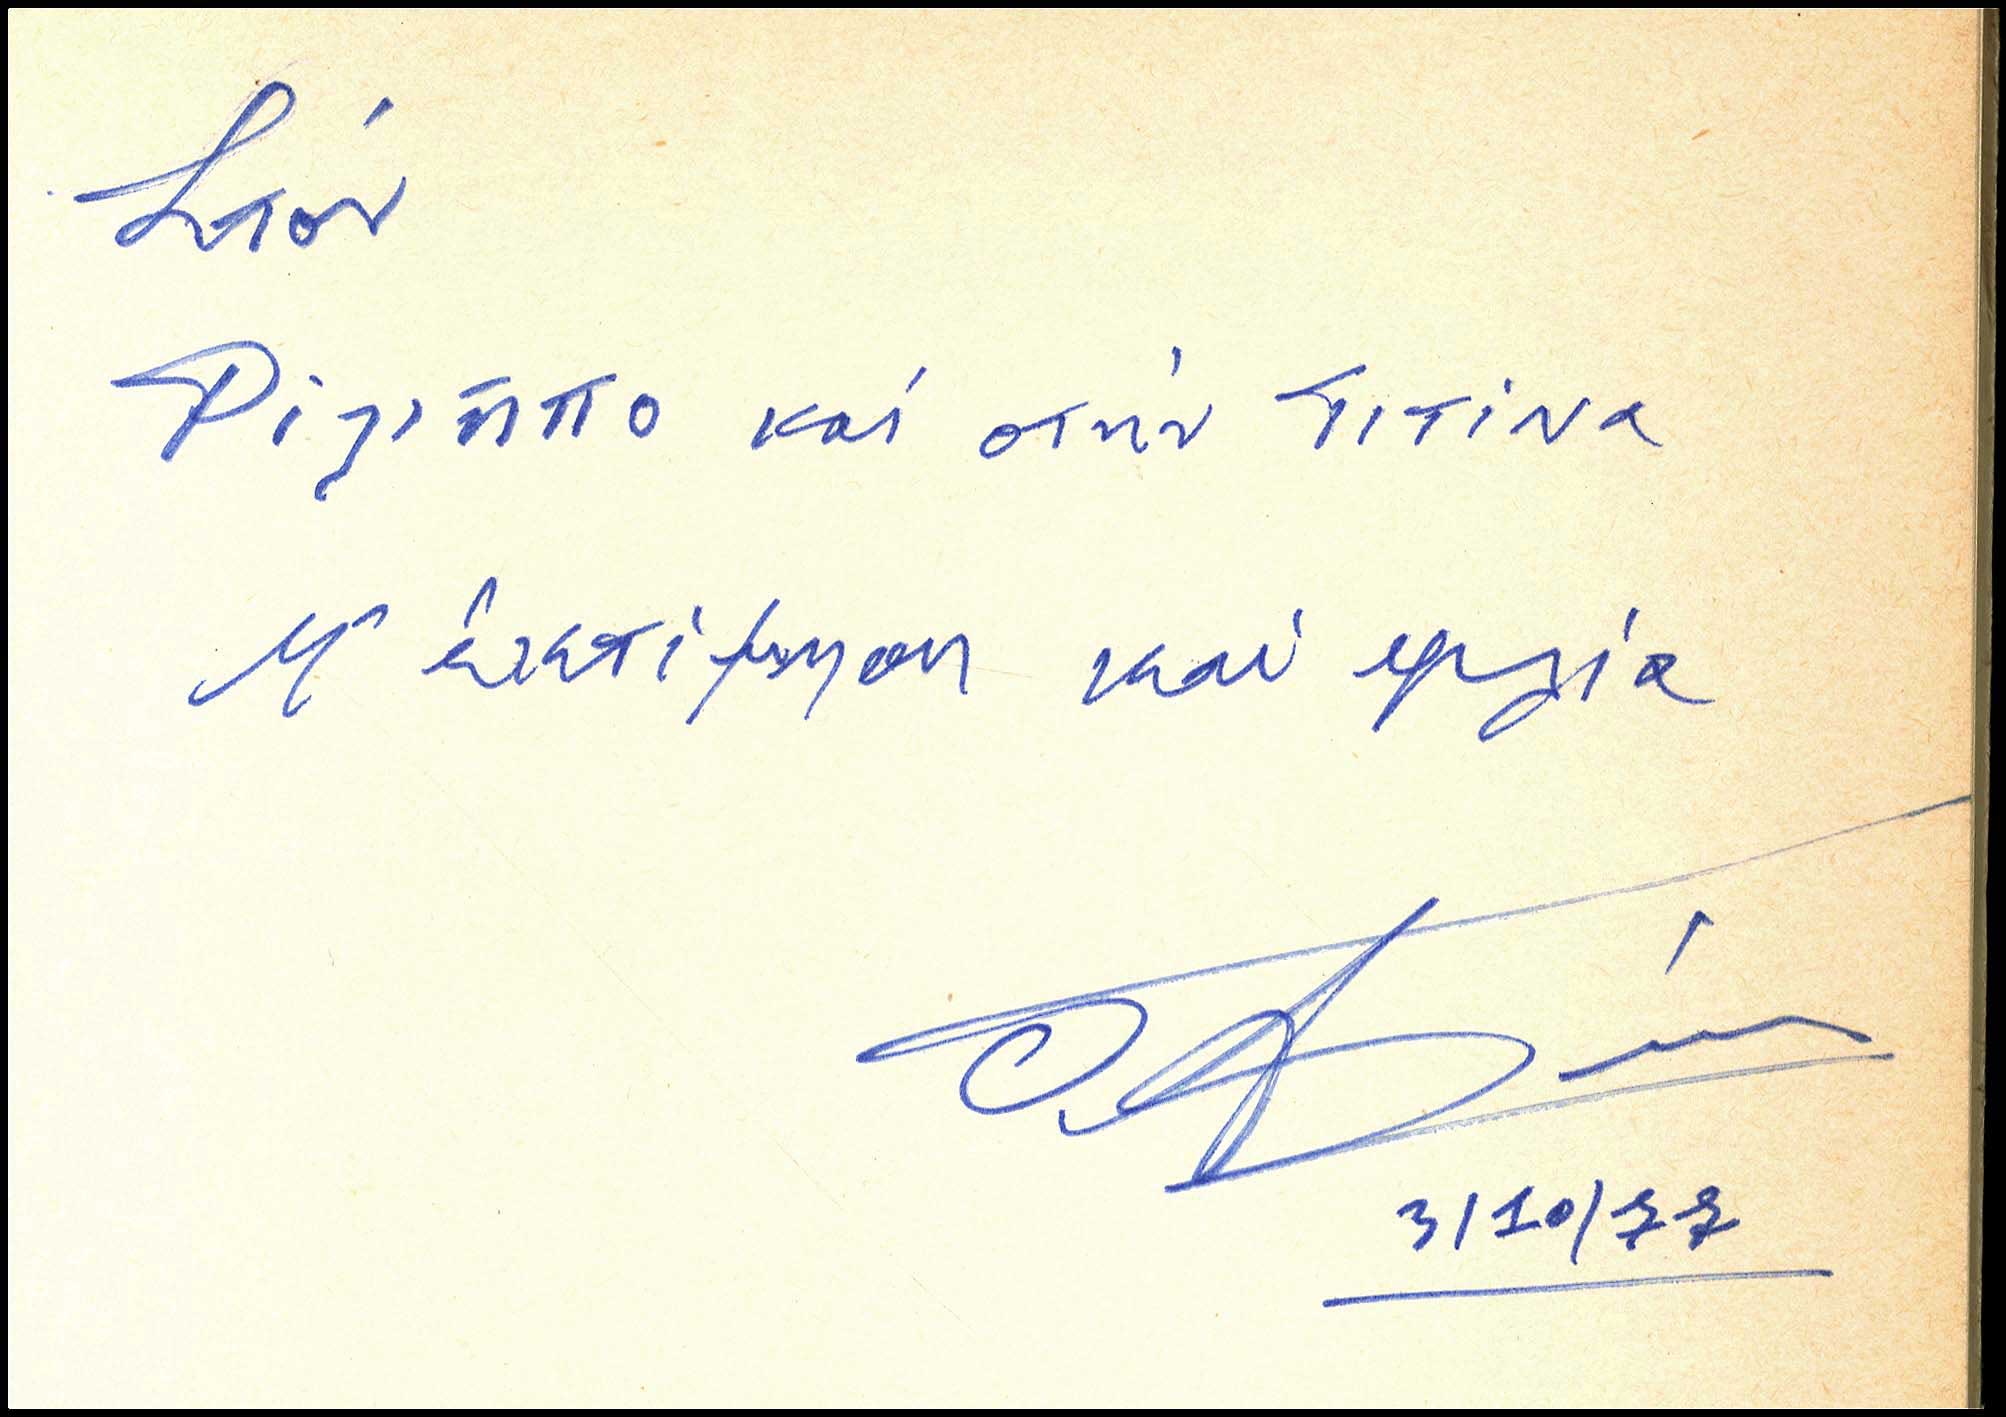 Στόν
Φίλιππο καί στήν Τιτίνα
μ' ἐκτίμηση καί φιλία
3/10/77